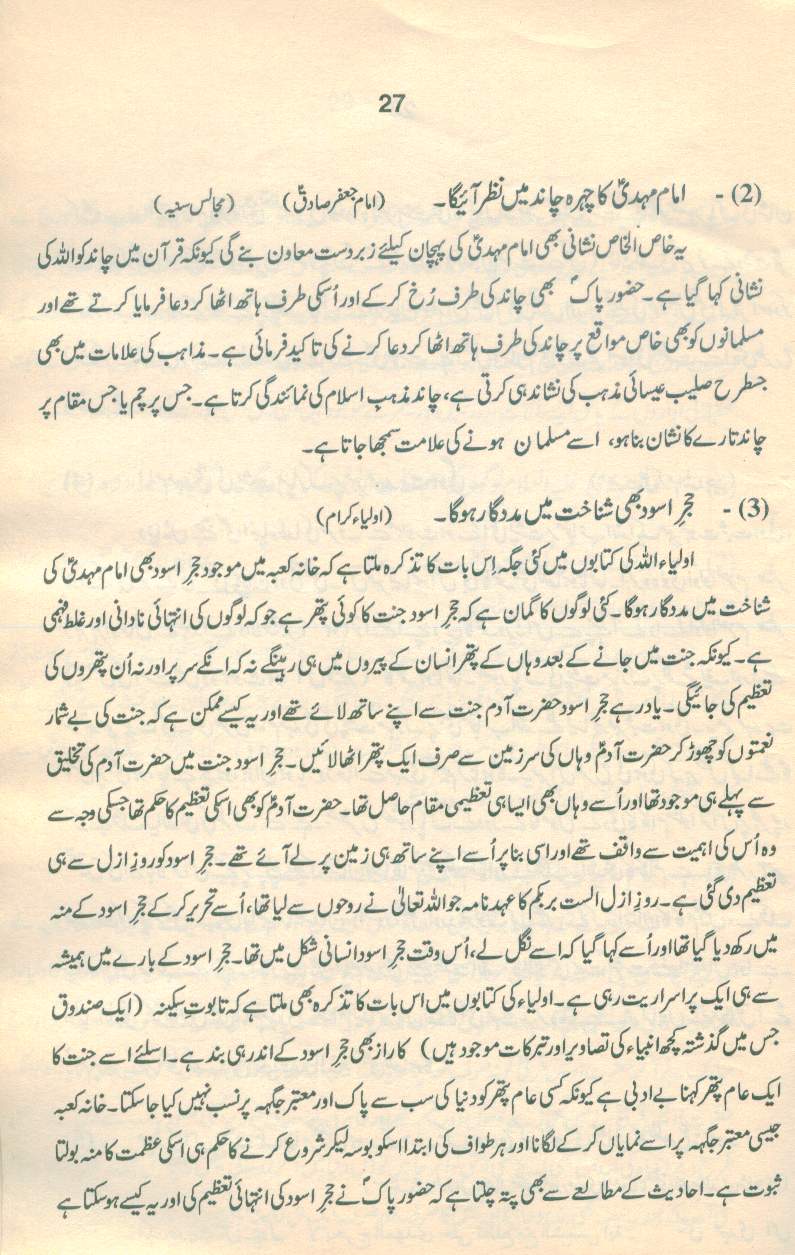 27
(2) - امام مہدیؑ کا چہرہ چاند میں نظر آئیگا۔ (امام جعفر صادقؑ) (مجالس سنیہ)
یہ خاص الخاص نشانی بھی امام مہدیؑ کی پہچان کیلئے زبردست معاون بنے گی کیونکہ قرآن میں چاند کو اللہ کی
نشانی کہا گیا ہے۔ حضور پاکؐ بھی چاند کی طرف رُخ کر کے اور اُسکی طرف ہاتھ اٹھا کر دعا فرمایا کرتے تھے اور
مسلمانوں کو بھی خاص مواقع پر چاند کی طرف ہاتھ اٹھا کر دعا کرنے کی تاکید فرمائی ہے۔ مذاہب کی علامات میں بھی
جسطرح صلیب عیسائی مذہب کی نشاندہی کرتی ہے، چاند مذہبِ اسلام کی نمائندگی کرتا ہے۔ جس پرچم یا جس مقام پر
چاند تارے کا نشان بنا ہو، اسے مسلمان ہونے کی علامت سمجھا جاتا ہے۔
(3) - حجرِ اسود بھی شناخت میں مددگار ہوگا۔ (اولیاء کرام)
اولیاء اللہ کی کتابوں میں کئی جگہ اِس بات کا تذکرہ ملتا ہے کہ خانہ کعبہ میں موجود حجرِ اسود بھی امام مہدیؑ کی
شناخت میں مددگار ہوگا۔ کئی لوگوں کا گمان ہے کہ حجرِ اسود جنت کا کوئی پتھر ہے جو کہ لوگوں کی انتہائی نادانی اور غلط فہمی
ہے۔ کیونکہ جنت میں جانے کے بعد وہاں کے پتھر انسان کے پیروں میں ہی رہینگے نہ کہ انکے سر پر اور نہ اُن پتھروں کی
تعظیم کی جائیگی۔ یاد رہے حجرِ اسود حضرت آدم جنت سے اپنے ساتھ لائے تھے اور یہ کیسے ممکن ہے کہ جنت کی بے شمار
نعمتوں کو چھوڑ کر حضرت آدمؑ وہاں کی سرزمین سے صرف ایک پتھر اٹھا لائیں۔ حجرِ اسود جنت میں حضرت آدم کی تخلیق
سے پہلے ہی موجود تھا اور اُسے وہاں بھی ایسا ہی تعظیمی مقام حاصل تھا۔ حضرت آدمؑ کو بھی اسکی تعظیم کا حکم تھا جسکی وجہ سے
وہ اُس کی اہمیت سے واقف تھے اور اسی بنا پر اُسے اپنے ساتھ ہی زمین پر لے آئے تھے۔ حجرِ اسود کو روزِ ازل سے ہی
تعظیم دی گئی ہے۔ روزِ ازل الست بربکم کا عہد نامہ جو اللہ تعالیٰ نے روحوں سے لیا تھا، اُسے تحریر کر کے حجرِ اسود کے منہ
میں رکھ دیا گیا تھا اور اُسے کہا گیا کہ اسے نگل لے، اُس وقت حجرِ اسود انسانی شکل میں تھا۔ حجرِ اسود کے بارے میں ہمیشہ
سے ہی ایک پراسراریت رہی ہے۔ اولیاء کی کتابوں میں اس بات کا تذکرہ بھی ملتا ہے کہ تابوتِ سکینہ (ایک صندوق
جس میں گذشتہ کچھ انبیاء کی تصاویر اور تبرکات موجود ہیں) کا راز بھی حجرِ اسود کے اندر ہی بند ہے۔ اسلئے اسے جنت کا
ایک عام پتھر کہنا بے ادبی ہے کیونکہ کسی عام پتھر کو دنیا کی سب سے پاک اور معتبر جگہہ پر نسب نہیں کیا جا سکتا۔ خانہ کعبہ
جیسی معتبر جگہہ پر اسے نمایاں کر کے لگانا اور ہر طواف کی ابتدا اسکو بوسہ لیکر شروع کرنے کا حکم ہی اسکی عظمت کا منہ بولتا
ثبوت ہے۔ احادیث کے مطالعے سے بھی پتہ چلتا ہے کہ حضور پاکؐ نے حجرِ اسود کی انتہائی تعظیم کی اور یہ کیسے ہو سکتا ہے